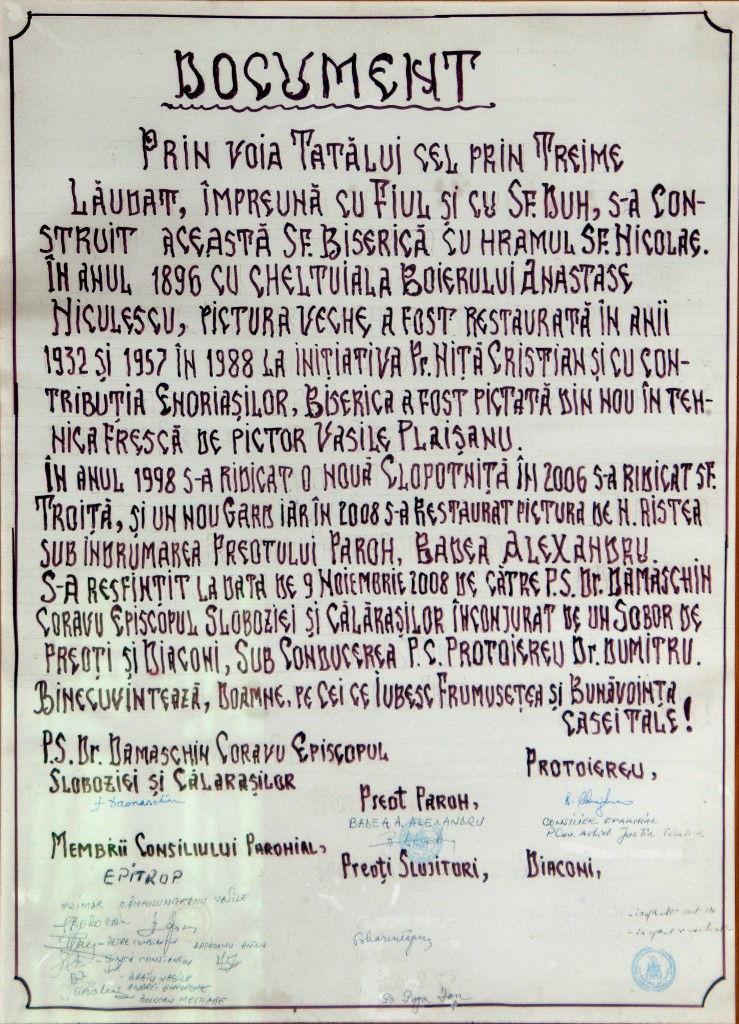 DOCUMENT
PRIN VOIA TATĂLUI CEL PRIN TREIME
LĂUDAT, ÎMPREUNĂ CU FIUL ȘI CU SF. DUH, S-A CON-
STRUIT ACEASTĂ SF. BISERICĂ CU HRAMUL SF. NICOLAE.
ÎN ANUL 1896 CU CHELTUIALA BOIERULUI ANASTASE
NICULESCU, PICTURA VECHE A FOST RESTAURATĂ ÎN ANII
1932 ȘI 1957 ÎN 1988 LA INIȚIATIVA Pr. NIȚĂ CRISTIAN ȘI CU CON-
TRIBUȚIA ENORIAȘILOR, BISERICA A FOST PICTATĂ DIN NOU ÎN TEH-
NICA FRESCĂ DE PICTOR VASILE PLAIȘANU.
ÎN ANUL 1998 S-A RIDICAT O NOUĂ CLOPOTNIȚĂ ÎN 2006 S-A RIDICAT SF.
TROIȚĂ, ȘI UN NOU GARD IAR ÎN 2008 S-A RESTAURAT PICTURA DE H. RISTEA
SUB ÎNDRUMAREA PREOTULUI PAROH, BADEA ALEXANDRU.
S-A RESFINȚIT LA DATA DE 9 NOIEMBRIE 2008 DE CĂTRE P.S. Dr. DAMASCHIN
CORAVU EPISCOPUL SLOBOZIEI ȘI CĂLĂRAȘILOR ÎNCONJURAT DE UN SOBOR DE
PREOȚI ȘI DIACONI, SUB CONDUCEREA P.C. PROTOIEREU Dr. DUMITRU.
BINECUVINTEAZĂ, DOAMNE, PE CEI CE IUBESC FRUMUSEȚEA ȘI BUNĂVOINȚA
CASEI TALE!
P.S. Dr. DAMASCHIN CORAVU EPISCOPUL
SLOBOZIEI ȘI CĂLARAȘILOR
† Damaschin
PREOT PAROH,
BADEA A. ALEXANDRU
PROTOIEREU,
CONSILIER EPARHIAL
MEMBRII CONSILIULUI PAROHIAL,
EPITROP
PREOȚI SLUJITORI,
DIACONI,
PRIMAR CÎMPULUNGEANU VASILE
PETRE CONSTANTIN
CONSTANTIN
BRATU VASILE
ANDREI GHEORGHE